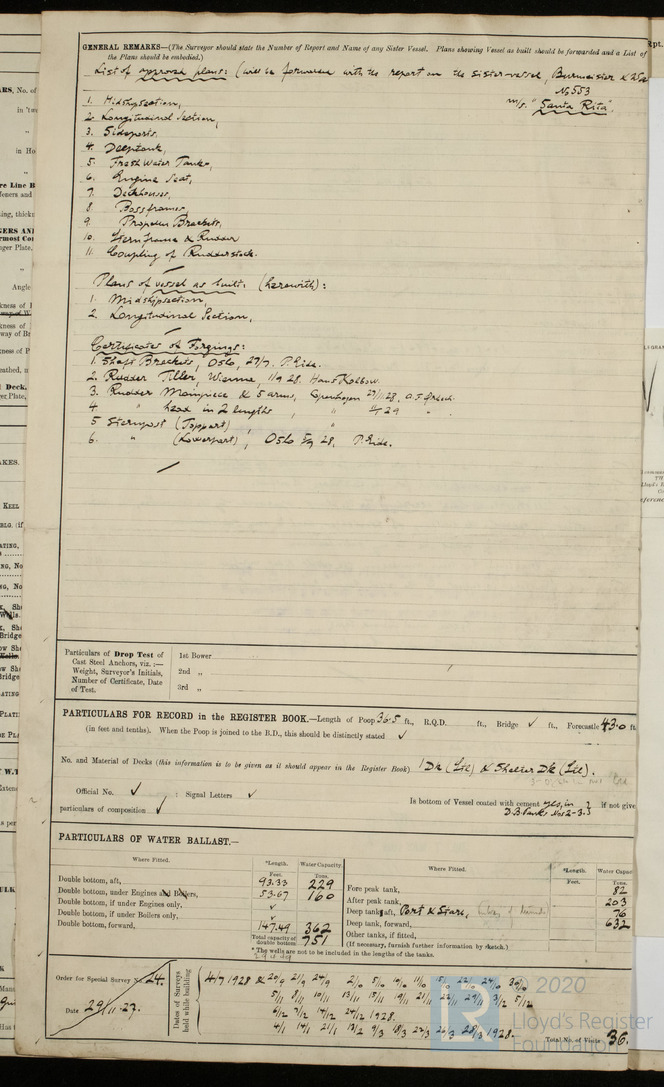 GENERAL REMARKS—(The Surveyor should state the Number of Report and Name of any Sister Vessel. Plans showing Vessel as built should be forwarded and a List of
the Plans should be embodied.)
List of approved plans: (will be forwarded with the report on the sistervessel, Burmeister &
No 553
m/s. "Santa Rita".
1. Midshipsection,
2. Longitudinal Section,
3. Sideports,
4. Deeptank,
5. Fresh Water Tanks,
6. Engine Seat,
7. Deckhouses,
8. Bossframes,
9. Propeller Brackets,
10. Sternframe & Rudder
11. Coupling of Rudderstock.
Plans of vessel as built: (herewith):
1. Midshipsection,
2. Longitudinal Section,
Certificates of Forgings:
1. Shaft Brackets, Oslo, 27/7. P. Ride.
2. Rudder Tiller, 11/9 28. Hans
3. Rudder Mainpiece & 5 arms, Copenhagen 27/11 28,
4 " head in 2 lengths " 29 "
5 Sternpost (Toppart) "
6. " (Lowerpart), Oslo 28, P. Ride.
Particulars of Drop Test of
Cast Steel Anchors, viz. :—
Weight, Surveyor's Initials,
Number of Certificate, Date
of Test.
1st Bower
2nd „
3rd „
PARTICULARS FOR RECORD in the REGISTER BOOK.—Length of Poop 36.5 ft., R.Q.D. ft., Bridge ✓ ft., Forecastle 43.0 ft.
(in feet and tenths). When the Poop is joined to the B.D., this should be distinctly stated ✓
No. and Material of Decks (this information is to be given as it should appear in the Register Book) 1 Dk (Stl) & Shelter Dk (Stl).
Official No. ✓ : Signal Letters ✓
Is bottom of Vessel coated with cement yes, in if not give
particulars of composition ✓
D.B. Tanks Nos 2-3.
PARTICULARS OF WATER BALLAST.—
Where Fitted. *Length. Water Capacity.
Feet. Tons.
Double bottom, aft, 93.33 229
Double bottom, under Engines and Boilers, 53.67 160
Double bottom, if under Engines only, ✓
Double bottom, if under Boilers only, ✓
Double bottom, forward, 147.49 362
Total capacity of double bottom 751
Where Fitted. *Length. Water Capac
Feet. Tons.
Fore peak tank, 82
After peak tank, 203
Deep tank, aft, Port & Starb, 76
Deep tank, forward, 632
Other tanks, if fitted,
(If necessary, furnish further information by sketch.)
* The wells are not to be included in the lengths of the tanks.
Order for Special Survey No. 24.
Date 29/11-27.
Dates of Surveys
held while building
4/7 1928 & 20/9 21/9 24/9 2/10 5/10 10/10 11/10 15/10 22/10 24/10 30/10
5/11 8/11 10/11 13/11 15/11 19/11 21/11 22/11 29/11 3/12 5/12
6/12 7/12 14/12 24/12 1928.
4/1 14/1 21/1 13/2 9/3 18/3 22/3 26/3 28/3 1928.
Total No. of Visits 36.
© 2020
Lloyd's Register
Foundation